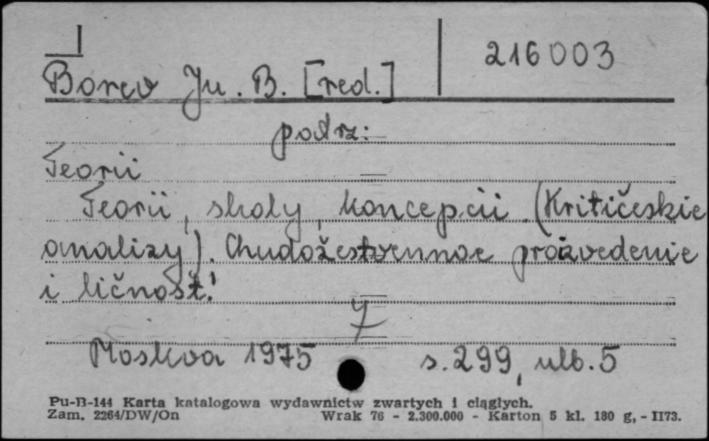 216003
Borev Ju. B. [red.]
podrz:
Teorii
Teorii, skoly, koncepcii (Kritičeskie
analizy). Chudožestvennoe proizvedenie
i ličnost!
Moskva 1975 s. 299, nlb. 5
Pu-B-144 Karta katalogowa wydawnictw zwartych i ciągłych.
Zam. 2264/DW/On Wrak 76 - 2.300.000 - Karton 5 kl. 180 g, - II73.